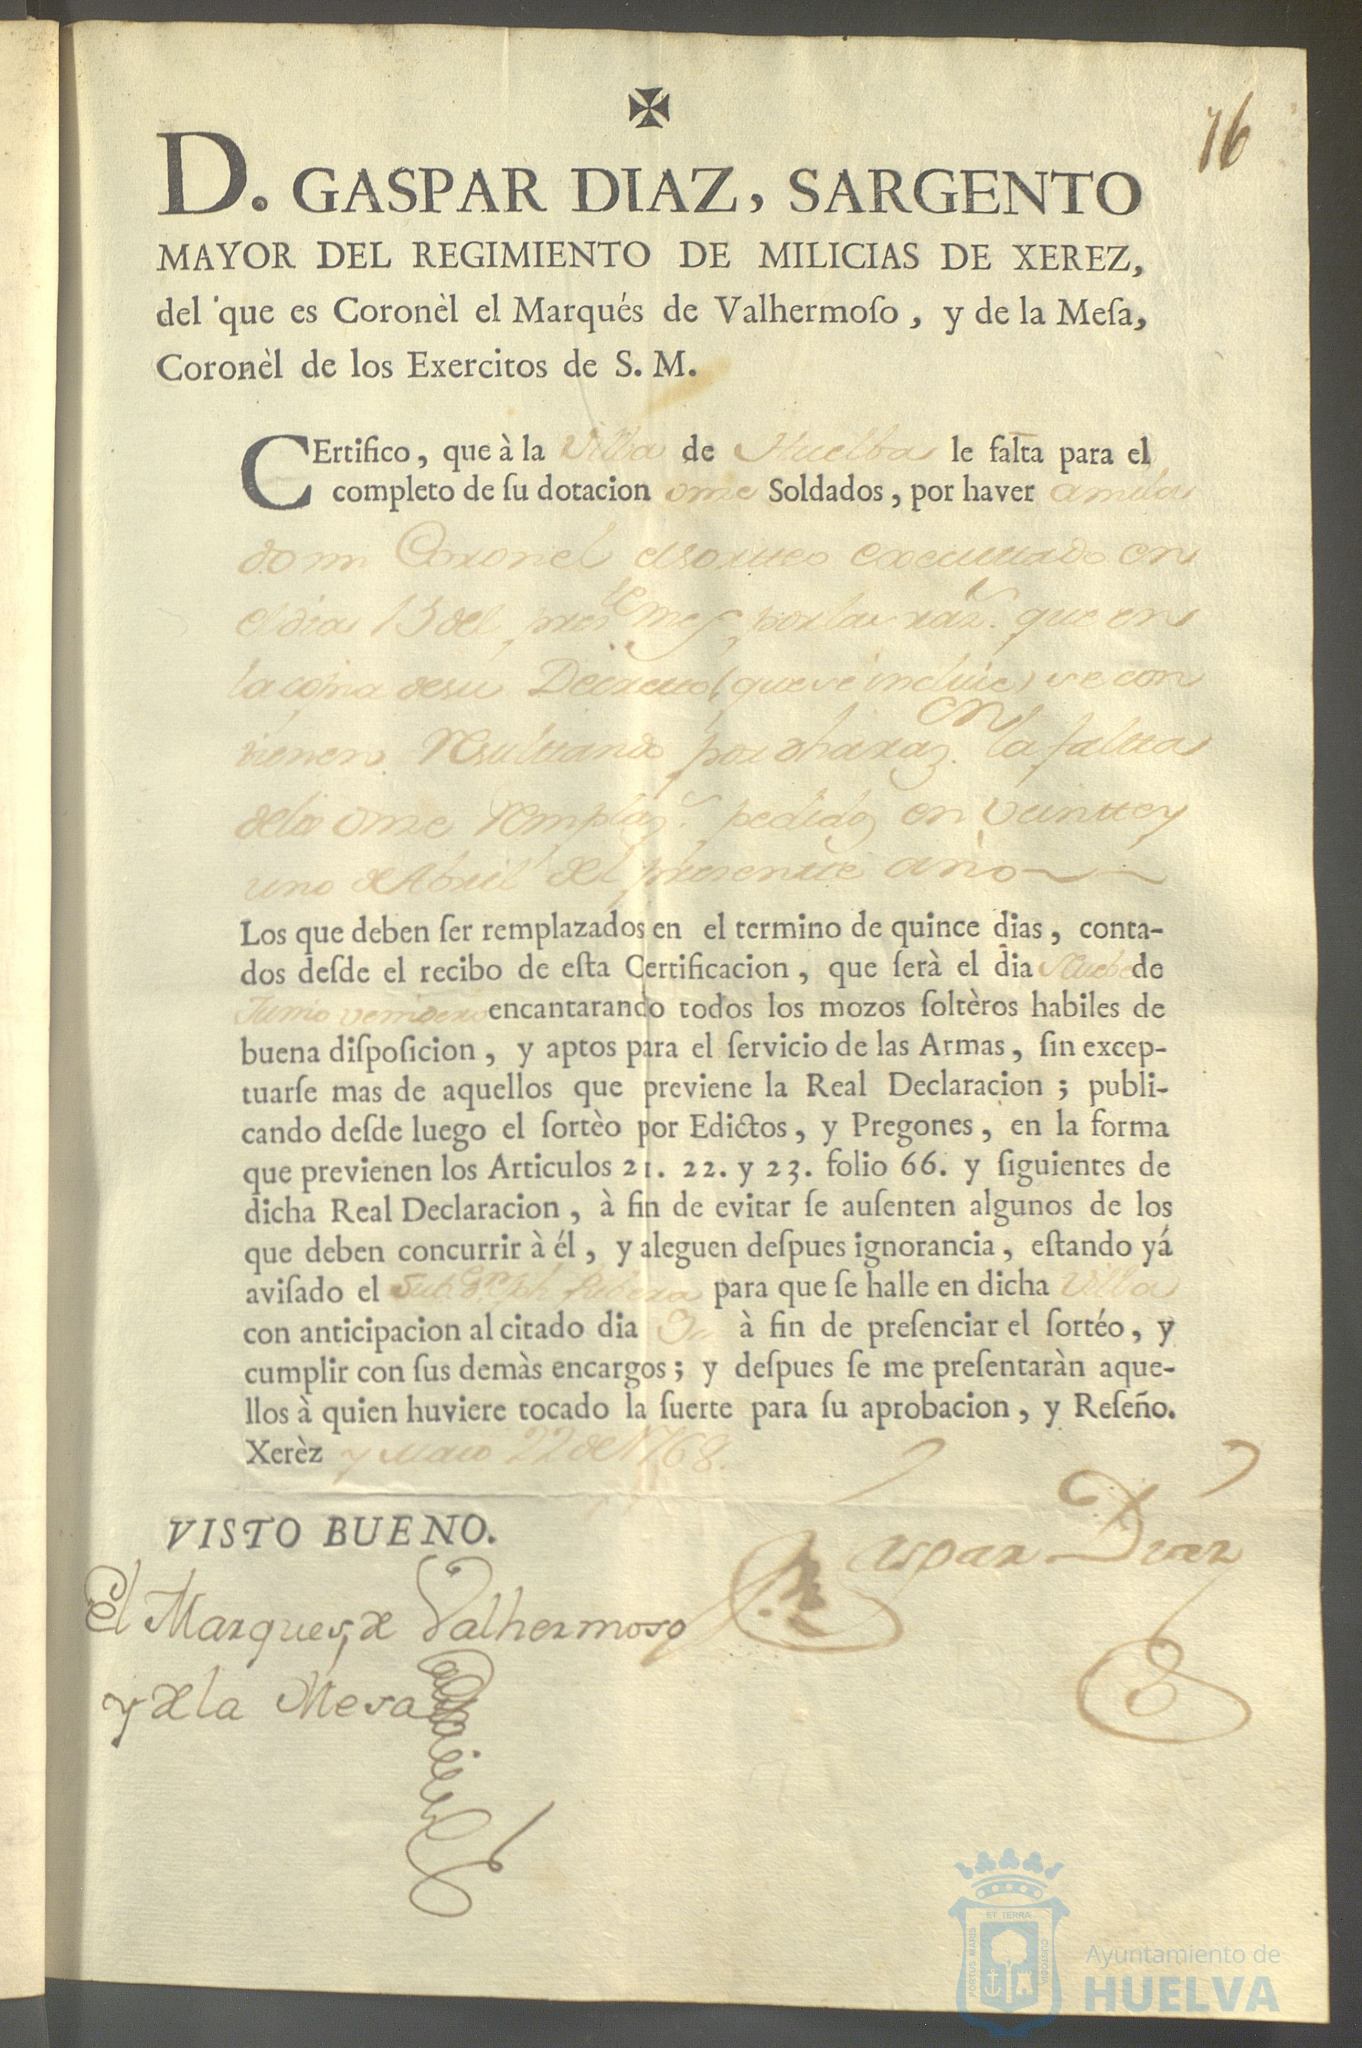 ✠
16
D. GASPAR DIAZ, SARGENTO
MAYOR DEL REGIMIENTO DE MILICIAS DE XEREZ,
del que es Coronèl el Marqués de Valhermoſo, y de la Meſa,
Coronèl de los Exercitos de S. M.
CErtifico, que à la Villa de Huelba le falta para el
completo de ſu dotacion onze Soldados, por haver anula
do mi Coronel el sorteo executado en
el dia 15 del pres.te mes por las raz.s que en
la copia de su Decreto (que se incluie) se con
tienen Resultando por dha raz.n la falta
de los onze Remplaz.s pedidos en veinte y
uno de Abril del presente año
Los que deben ſer remplazados en el termino de quince dias, conta-
dos deſde el recibo de eſta Certificacion, que ſerà el dia Nuebe de
Junio venidero encantarando todos los mozos ſoltèros habiles de
buena diſpoſicion, y aptos para el ſervicio de las Armas, ſin excep-
tuarſe mas de aquellos que previene la Real Declaracion; publi-
cando deſde luego el ſortèo por Edictos, y Pregones, en la forma
que previenen los Articulos 21. 22. y 23. folio 66. y ſiguientes de
dicha Real Declaracion, à fin de evitar ſe auſenten algunos de los
que deben concurrir à él, y aleguen deſpues ignorancia, eſtando yá
aviſado el Sub.te Dn Jph Ribera para que ſe halle en dicha Villa
con anticipacion al citado dia 9 à fin de preſenciar el ſortéo, y
cumplir con ſus demàs encargos; y deſpues ſe me preſentaràn aque-
llos à quien huviere tocado la ſuerte para ſu aprobacion, y Reſeño.
Xerèz y Maio 22 de 1768.
VISTO BUENO.
Gaspar Diaz
El Marques, de Valhermoso
y de la Mesa
PORTUS MARIS ET TERRÆ CUSTODIA
Ayuntamiento de
HUELVA